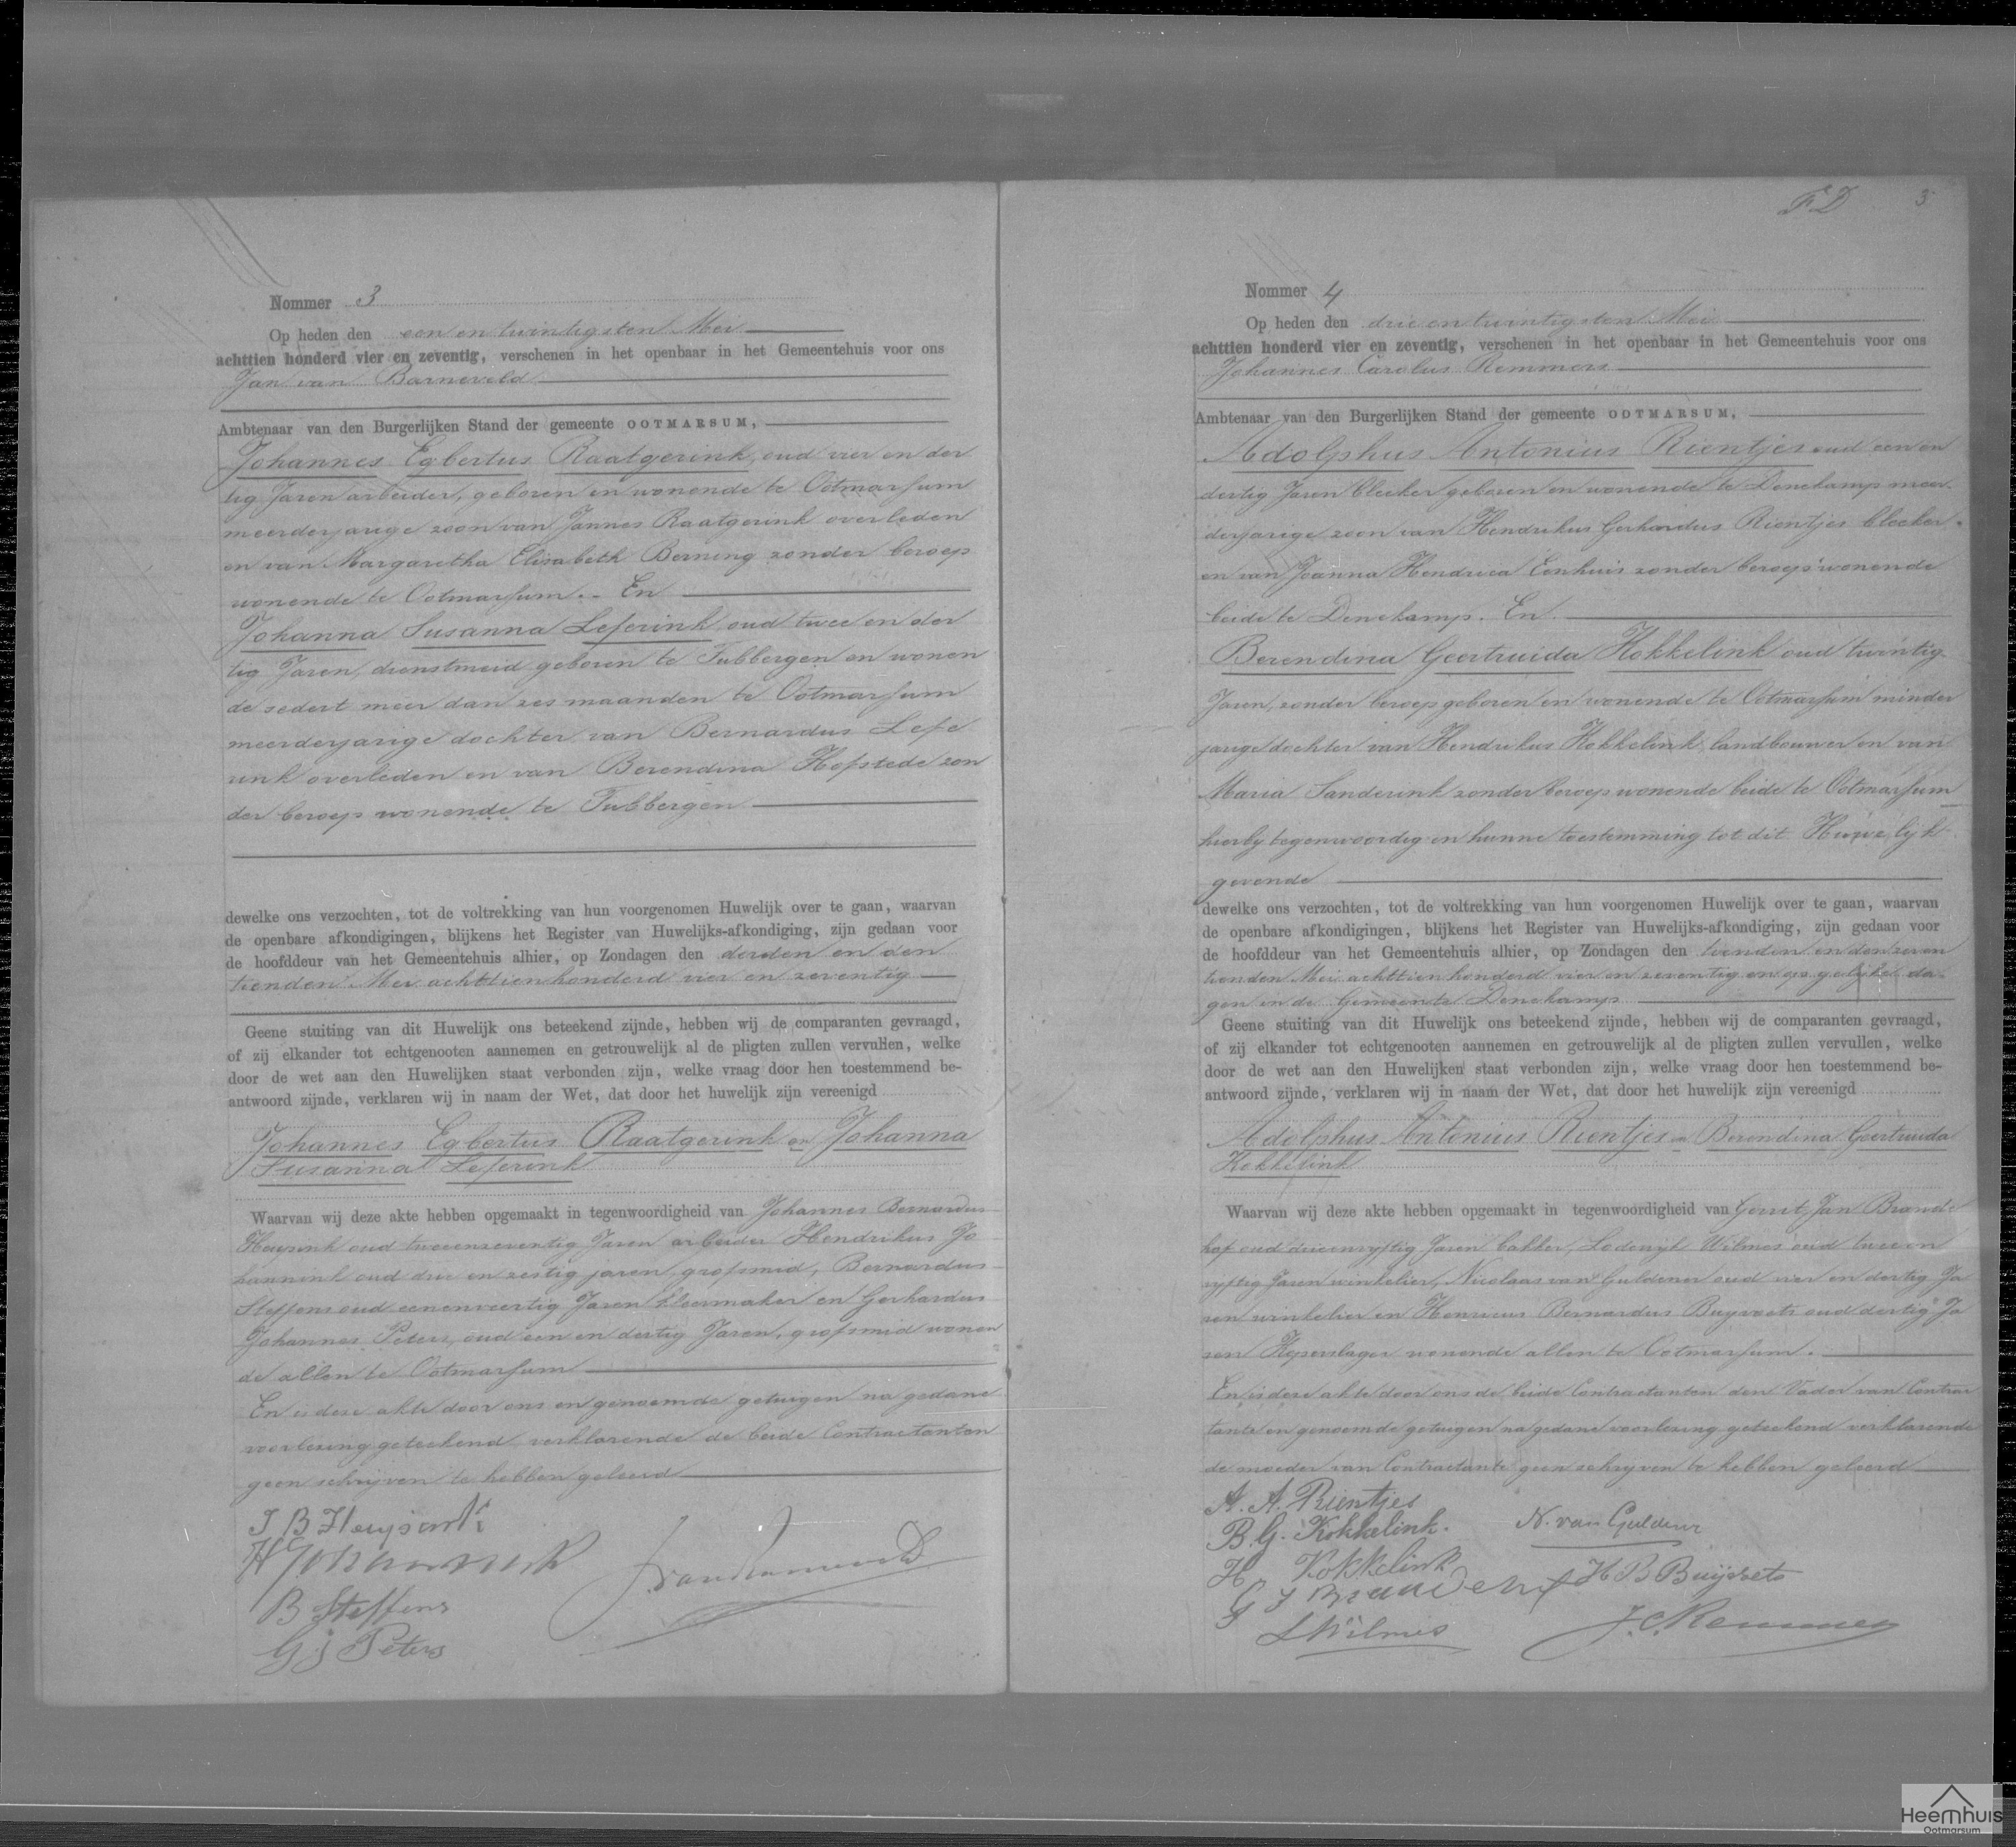 Nommer 3
Op heden den een en twintigsten Mei
achttien honderd vier en zeventig, verschenen in het openbaar in het Gemeentehuis voor ons
Jan van Barneveld
Ambtenaar van den Burgerlijken Stand der gemeente OOTMARSUM,
Johannes Egbertus Raatgerink, oud vier en der
tig Jaren arbeider, geboren en wonende te Ootmarsum
meerderjarige zoon van Jannes Raatgerink overleden
en van Margaretha Elisabeth Berning zonder beroep
wonende te Ootmarsum. - En
Johanna Susanna Leferink, oud twee en der
tig Jaren, dienstmeid geboren te Tubbergen en wonen
de sedert meer dan zes maanden te Ootmarsum
meerderjarige dochter van Bernardus Lefe
rink overleden en van Berendina Hofstede zon
der beroep wonende te Tubbergen
dewelke ons verzochten, tot de voltrekking van hun voorgenomen Huwelijk over te gaan, waarvan
de openbare afkondigingen, blijkens het Register van Huwelijks-afkondiging, zijn gedaan voor
de hoofddeur van het Gemeentehuis alhier, op Zondagen den derden en den
tienden Mei achttienhonderd vier en zeventig
Geene stuiting van dit Huwelijk ons beteekend zijnde, hebben wij de comparanten gevraagd,
of zij elkander tot echtgenooten aannemen en getrouwelijk al de pligten zullen vervullen, welke
door de wet aan den Huwelijken staat verbonden zijn, welke vraag door hen toestemmend be-
antwoord zijnde, verklaren wij in naam der Wet, dat door het huwelijk zijn vereenigd
Johannes Egbertus Raatgerink en Johanna
Susanna Leferink
Waarvan wij deze akte hebben opgemaakt in tegenwoordigheid van Johannes Bernardus
oud tweeenzeventig Jaren arbeider Hendrikus Jo
hannink oud drie en zestig jaren, grofsmid, Bernardus
Steffens oud eenenveertig Jaren kleermaker en Gerhardus
Johannes Peters, oud een en dertig Jaren, grofsmid wonen
de allen te Ootmarsum
En is deze akte door ons en genoemde getuigen na gedane
voorlezing geteekend verklarende de beide Contractanten
geen schrijven te hebben geleerd
H Johannink
B Steffens
G J Peters
J. van Barneveld
F.D 3
Nommer 4
Op heden den drie en twintigsten Mei
achttien honderd vier en zeventig, verschenen in het openbaar in het Gemeentehuis voor ons
Johannes Carolus Remmers
Ambtenaar van den Burgerlijken Stand der gemeente OOTMARSUM,
Adolphus Antonius Rientjes oud een en
dertig Jaren bleeker geboren en wonende te Denekamp meer
derjarige zoon van Hendrikus Gerhardus Rientjes bleeker
en van Joanna Hendrica Eenhuis zonder beroep wonende
beide te Denekamp. En
Berendina Geertruida Kokkelink oud twintig
Jaren, zonder beroep geboren en wonende te Ootmarsum minder
jarige dochter van Hendrikus Kokkelink landbouwer en van
Maria Sanderink zonder beroep wonende beide te Ootmarsum
hierby tegenwoordig en hunne toestemming tot dit Huwelijk
gevende
dewelke ons verzochten, tot de voltrekking van hun voorgenomen Huwelijk over te gaan, waarvan
de openbare afkondigingen, blijkens het Register van Huwelijks-afkondiging, zijn gedaan voor
de hoofddeur van het Gemeentehuis alhier, op Zondagen den tienden en den zeven
tienden Mei achttienhonderd vier en zeventig en op gelijke da-
gen in de Gemeente Denekamp
Geene stuiting van dit Huwelijk ons beteekend zijnde, hebben wij de comparanten gevraagd,
of zij elkander tot echtgenooten aannemen en getrouwelijk al de pligten zullen vervullen, welke
door de wet aan den Huwelijken staat verbonden zijn, welke vraag door hen toestemmend be-
antwoord zijnde, verklaren wij in naam der Wet, dat door het huwelijk zijn vereenigd
Adolphus Antonius Rientjes en Berendina Geertruida
Kokkelink
Waarvan wij deze akte hebben opgemaakt in tegenwoordigheid van Gerrit Jan Brande
hof oud drieenvyftig Jaren bakker, Lodewyk Wilmes oud twee en
vyftig Jaren winkelier, Nicolaas van Guldener oud vier en dertig Ja
ren winkelier en Henricus Bernardus Buyvoets oud dertig Ja
ren Koperslager wonende allen te Ootmarsum.
En is deze akte door ons de beide Contractanten den Vader van Contrac
tante en genoemde getuigen na gedane voorlezing geteekend verklarende
de moeder van Contractante geen schryven te hebben geleerd
A. A. Rientjes
B. G. Kokkelink.
H. Kokkelink
G J Brandehof
L Wilmes
N. van Guldener
H B Buijvoets
J. C. Remmers
Heemhuis
Ootmarsum